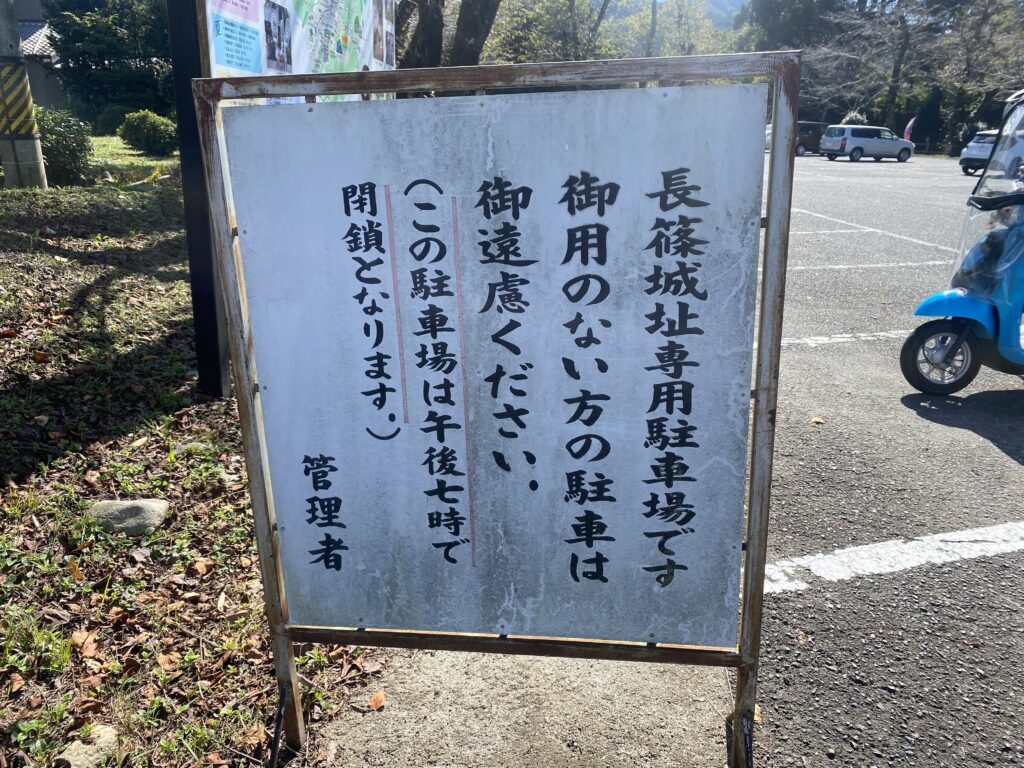 長篠城址専用駐車場です
御用のない方の駐車は
御遠慮ください.
(この駐車場は午後七時で
閉鎖となります.)
管理者